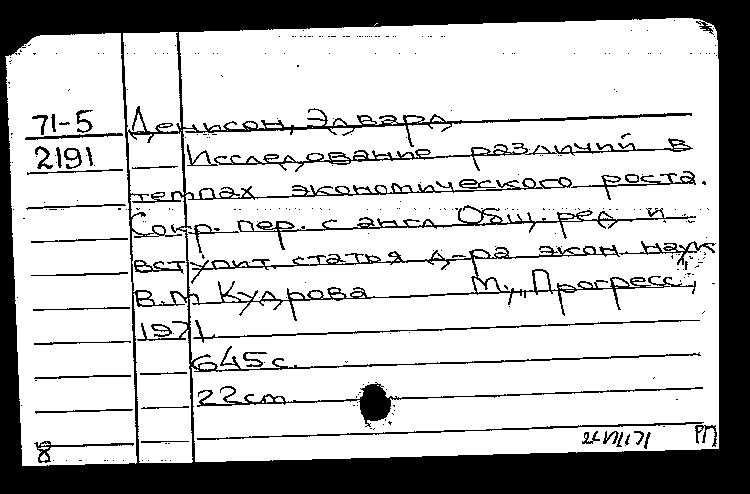 71-5 Денисон, Эдвард
2191 Исследование различий в
темпах экономического роста.
Сокр. пер. с англ Общ. ред и
вступит. статья д-ра экон. наук
В.М Кудрова М., „Прогресс",
1971.
645 с.
22 см.
8 РП